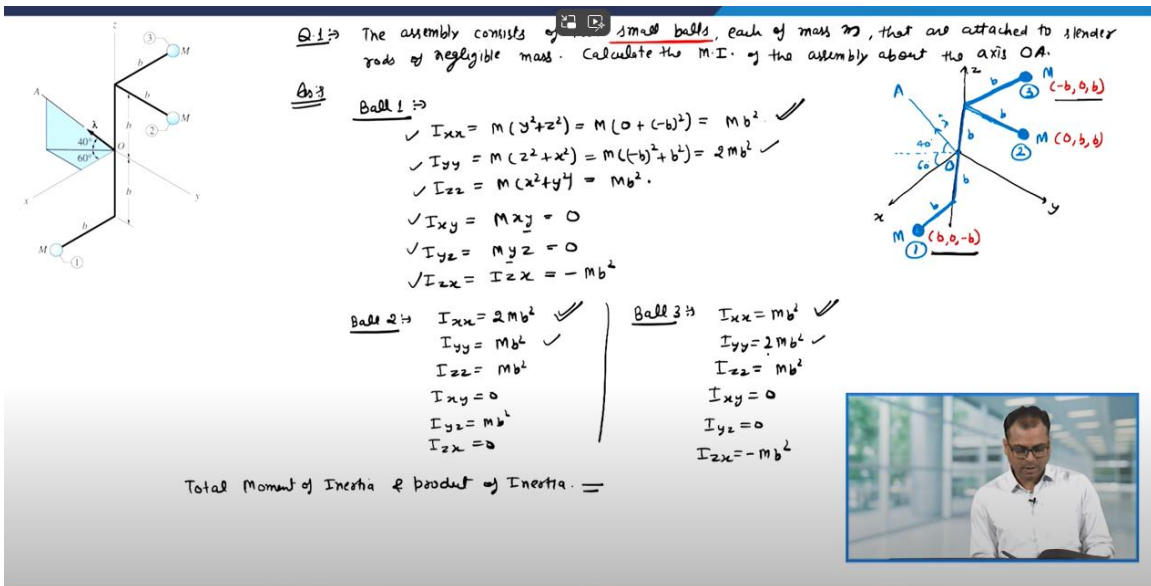 Q.1 :⇒ The assembly consists of small balls, each of mass m, that are attached to slender
rods of negligible mass. Calculate the M.I. of the assembly about the axis OA.
Ans :⇒
Ball 1 :⇒
✓ Ixx = M(y²+z²) = M(0 + (-b)²) = Mb². ✓
✓ Iyy = M(z²+x²) = M((-b)²+b²) = 2Mb² ✓
✓ Izz = M(x²+y²) = Mb².
✓ Ixy = Mxy = 0
✓ Iyz = Myz = 0
✓ Izx = Izx = -Mb²
Ball 2 :⇒ Ixx = 2Mb² ✓
Iyy = Mb² ✓
Izz = Mb²
Ixy = 0
Iyz = Mb²
Izx = 0
Ball 3 :⇒ Ixx = Mb² ✓
Iyy = 2Mb² ✓
Izz = Mb²
Ixy = 0
Iyz = 0
Izx = -Mb²
Total Moment of Inertia & product of Inertia. =
z
3
M
b
A
b
λ
M
2
b
40°
O
60°
b
x
y
b
M
1
z
b
M
3
(-b, 0, b)
A
b
λ
M (0, b, b)
2
b
40°
60°
O
b
x
b
y
M
(b, 0, -b)
1